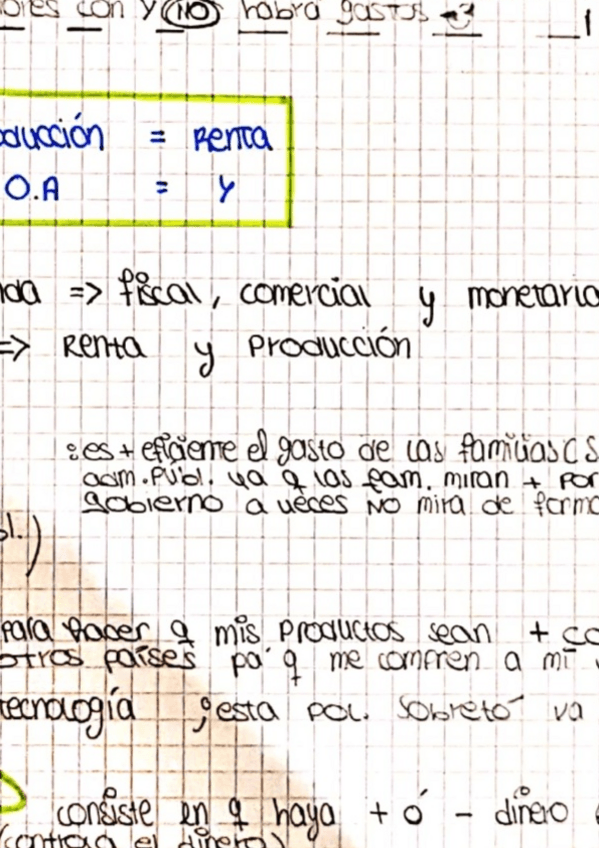 con Y (NO) habrá gastos
ducción = Renta
O.A = Y
da => fiscal, comercial y monetaria
=> Renta y Producción
: es + eficiente el gasto de las familias CS
adm. Públ. ya q las fam. miran + por
gobierno a veces NO mira de forma
bl.)
para hacer q mis productos sean + co
otros países pa' q me compren a mí
tecnología ; esta pol. sobretó va
consiste en q haya + ó - dinero
(controla el dinero)